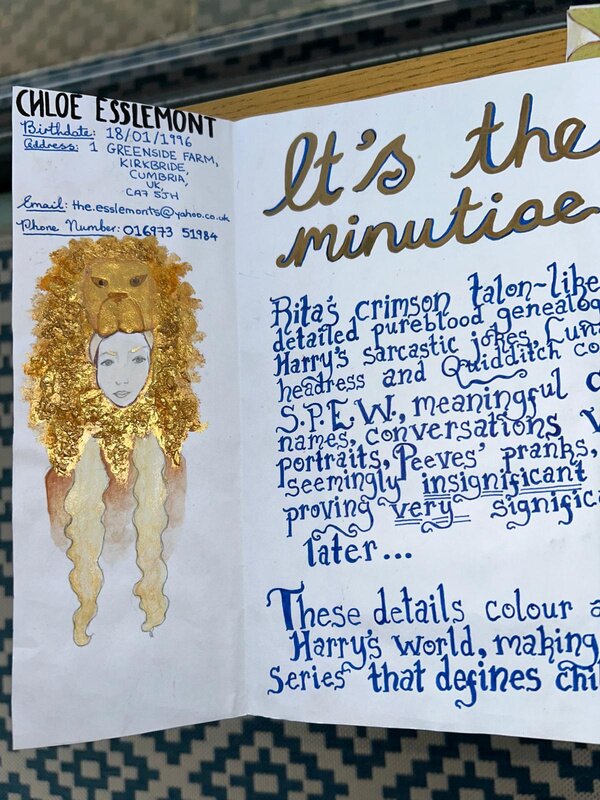 CHLOE ESSLEMONT
Birthdate: 18/01/1996
Address: 1 GREENSIDE FARM,
KIRKBRIDE,
CUMBRIA,
UK,
CA7 5JH
Email: the.esslemonts@yahoo.co.uk
Phone Number: 016973 51984
It's the
minutiae
Rita's crimson talon-like
detailed pureblood genealog
Harry's sarcastic jokes, Luna
headress and Quidditch co
S.P.E.W., meaningful
names, conversations
portraits, Peeves' pranks,
seemingly insignificant
proving very significa
later...
These details colour a
Harry's world, making
series that defines chi